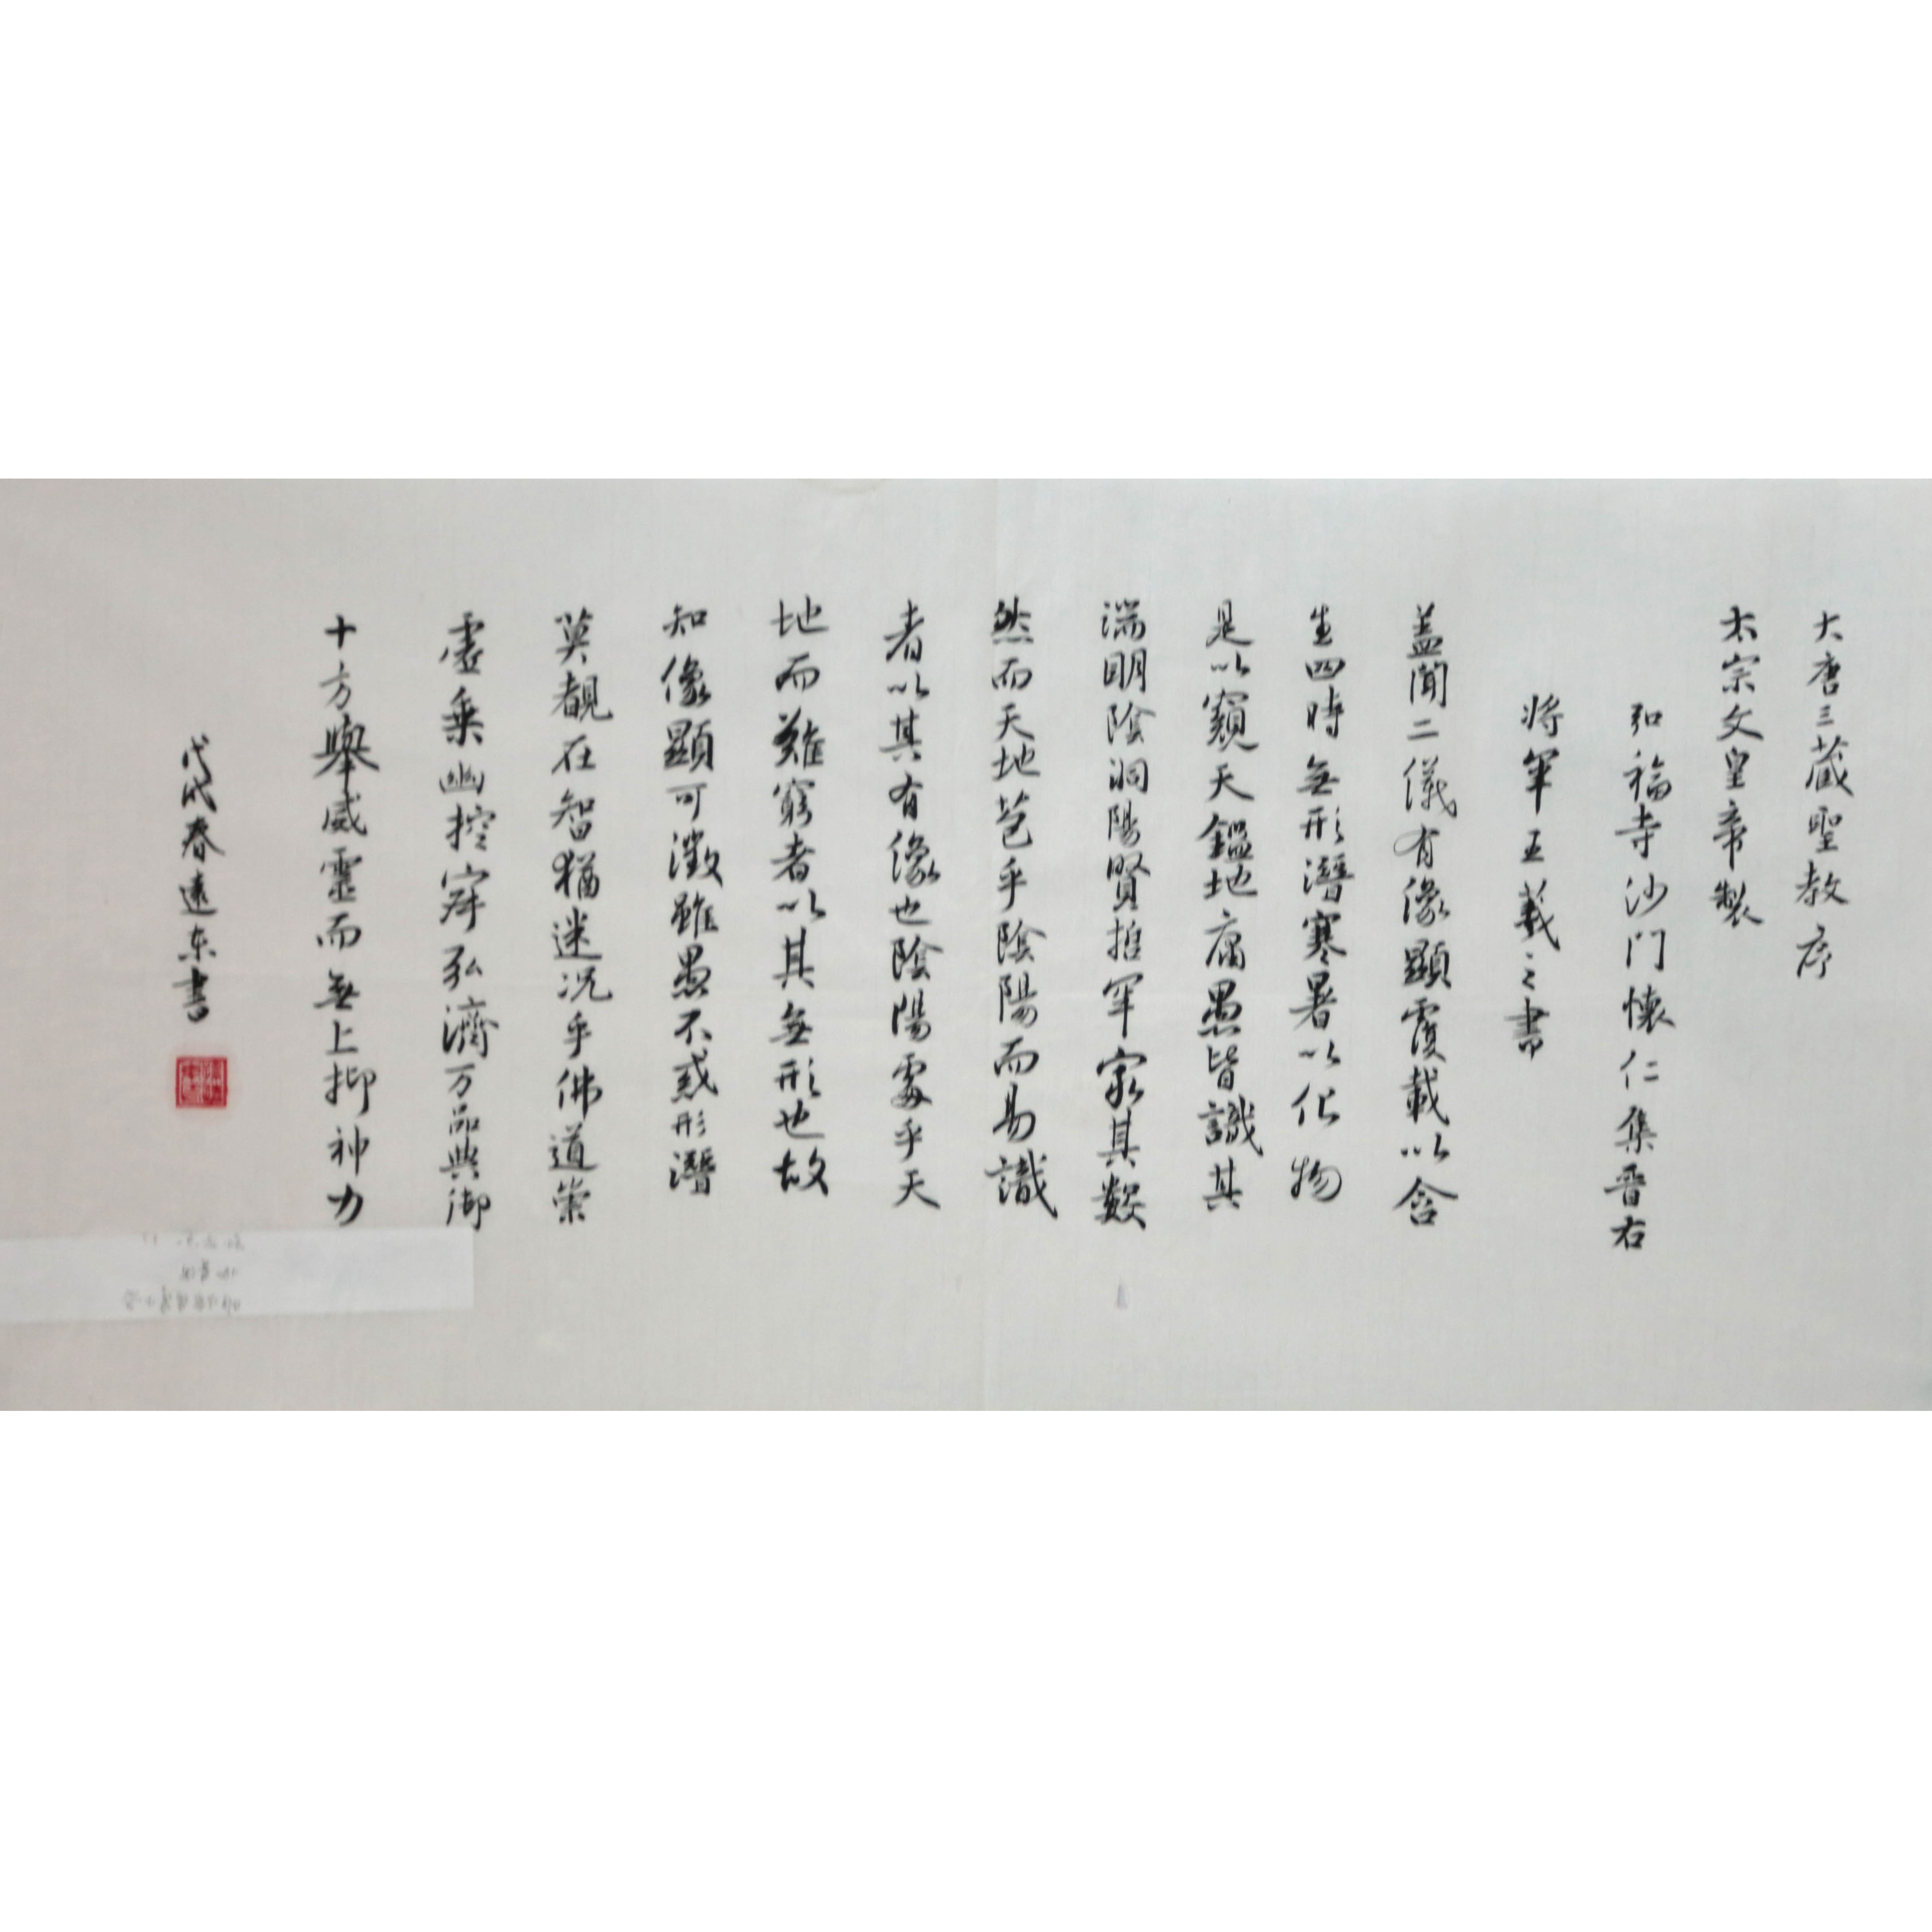 大唐三藏聖教序
太宗文皇帝製
弘福寺沙門懷仁集晉右
將軍王羲之書
蓋聞二儀有像顯覆載以含
生四時無形潛寒暑以化物
是以窺天鑑地庸愚皆識其
端明陰洞陽賢哲罕窮其數
然而天地苞乎陰陽而易識
者以其有像也陰陽處乎天
地而難窮者以其無形也故
知像顯可徵雖愚不惑形潛
莫覩在智猶迷况乎佛道崇
虛乘幽控寂弘濟万品典御
十方舉威靈而無上抑神力
戊戌春遠东書